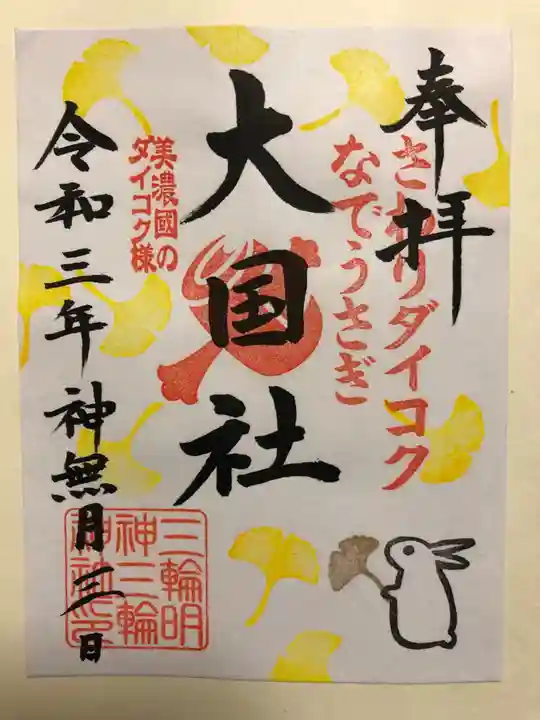 奉拝
さわりダイコク
なでうさぎ
大国社
美濃國の
ダイコク様
令和三年神無月三日
三輪明
神三輪
神社印